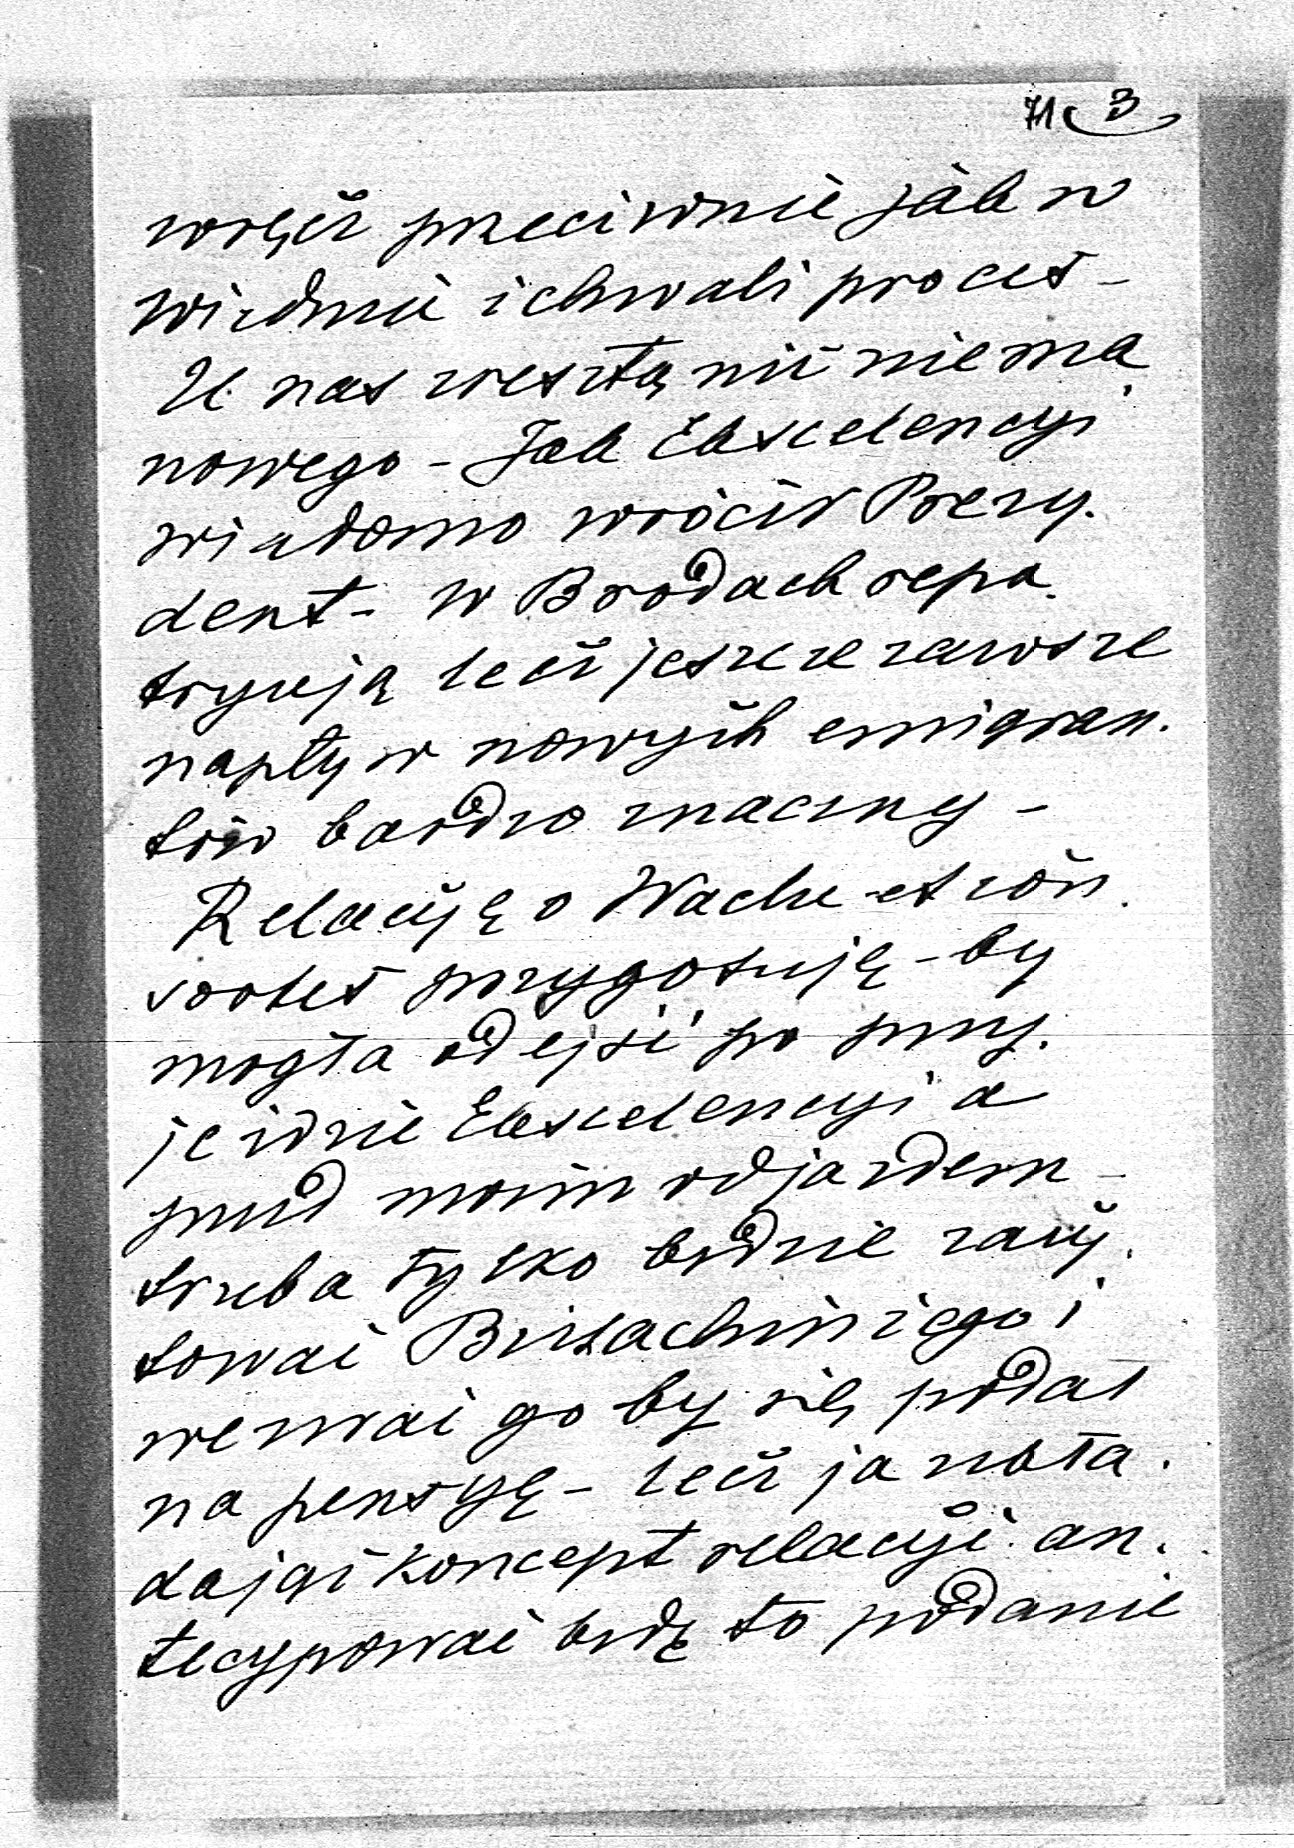 71 3
wręcz przeciwnie jak w
Wiedniu i chwali proces –
U nas zresztą nic niema
nowego – Jak Ekscelencyi
wiadomo wrócił Prezy.
dent – W Brodach repa.
tryują lecz jeszcze zawsze
napływ nowych emigran.
tów bardzo znaczny –
Relacyję o Wachu et
przygotuję – by
mogła odejść po przy.
jeździe Ekscelencyi a
przed moim odjazdem –
trzeba tylko będzie zacy.
tować i
wezwać go by się podał
na pensyę – lecz ja
dając koncept relacyi an.
tecypować będę to podanie